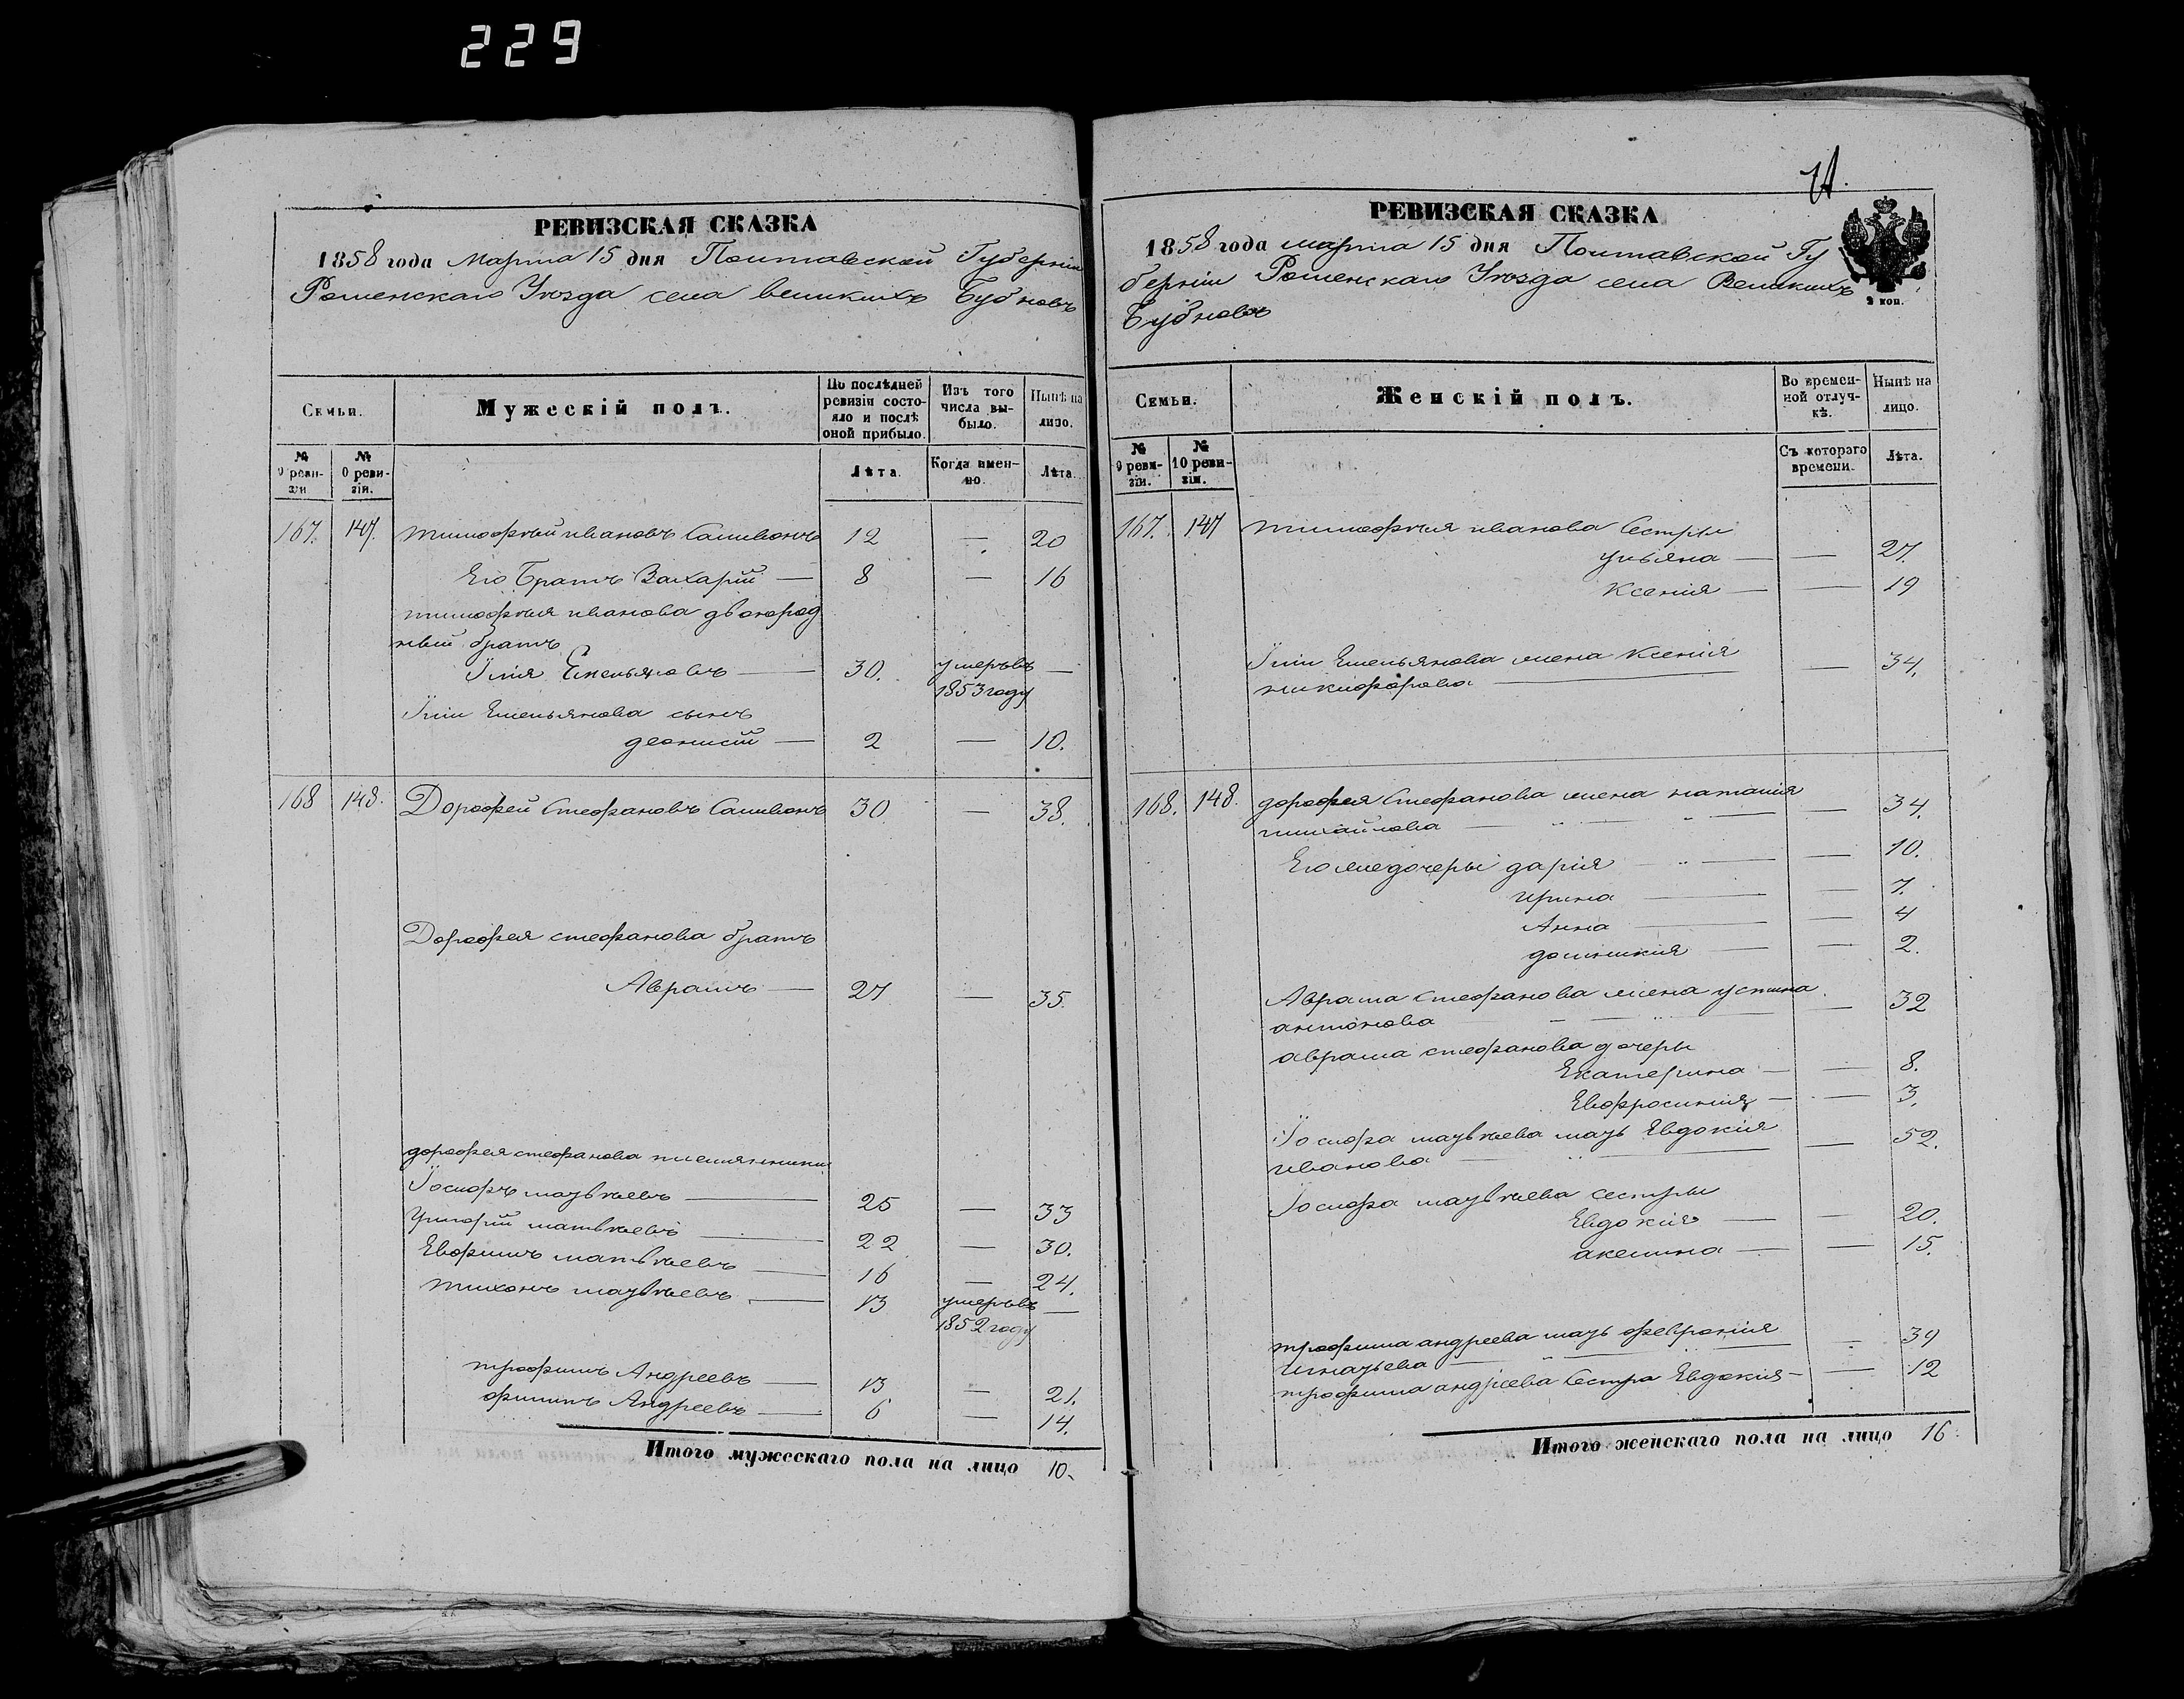 229
РЕВИЗСКАЯ СКАЗКА
1858 года Марта 15 дня Полтавской Губерніи
Роменскаго Уѣзда села великихъ Бубновъ
Семьи. Мужескій полъ. По послѣдней ревизіи состояло и послѣ оной прибыло. Изъ того числа выбыло. Нынѣ на лицо.
№ 9 ревизіи. № 10 ревизіи. Лѣта. Когда именно. Лѣта.
167. 147. тимофѣй ивановъ Саливонъ 12 — 20
Его Братъ Захарій — 8 — 16
тимофѣя иванова двоюрод
ный братъ
Ілія Емельяновъ — 30. умеръ въ —
1853 году
Іліи Емельянова сынъ
деонисій — 2 — 10.
168 148. Дорофей Стефановъ Саливонъ 30 — 38.
Дорофея стефанова братъ
Аврамъ — 27 — 35.
дорофея стефанова племянники
Іосифъ матвѣевъ — 25 — 33
Григорій матвѣевъ — 22 — 30.
Евфимъ матвѣевъ — 16 — 24.
тихонъ матвѣевъ — 13 умеръ въ —
1852 году
трофимъ Андреевъ — 13 — 21.
филипъ Андреевъ — 6 — 14.
Итого мужескаго пола на лицо 10.
РЕВИЗСКАЯ СКАЗКА
1858 года марта 15 дня Полтавской Гу
берніи Роменскаго Уѣзда села Великихъ
2 коп.
Бубновъ
Семьи. Женскій полъ. Во временной отлучкѣ. Нынѣ на лицо.
№ 9 ревизіи. № 10 ревизіи. Съ котораго времени. Лѣта.
167. 147 тимофѣя иванова Сестры
ульяна — — 27.
Ксенія — — 19
Іліи Емельянова жена Ксенія — 34.
никифорова —
168. 148. дорофея Стефанова жена наталія — 34.
михайлова —
Его же дочеры дарія — — 10.
ирина — — 7.
Анна — — 4
домникія — — 2.
Аврама стефанова жена устина — 32
антонова —
аврама стефанова дочеры
Екатерина — — 8.
Евфросинія — — 3.
Іосифа матвѣева мать Евдокія — 52.
иванова —
Іосифа матвѣева сестры
Евдокія — — 20.
акелина — — 15.
трофима андреева мать феврония — 39
игнатьева —
трофима андреева Сестра Евдокия — — 12
Итого женскаго пола на лицо 16